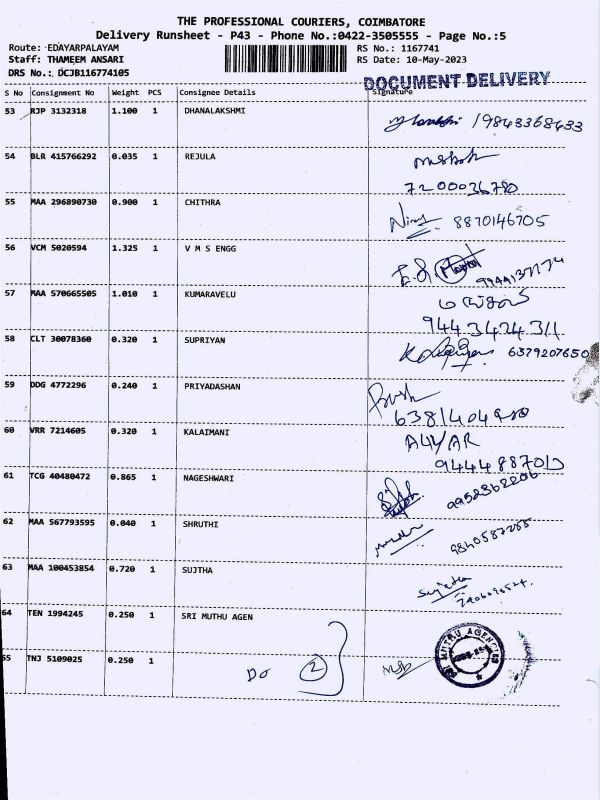 THE PROFESSIONAL COURIERS, COIMBATORE
Delivery Runsheet - P43 - Phone No.:0422-3505555 - Page No.:5
Route: EDAYARPALAYAM RS No.: 1167741
Staff: THAMEEM ANSARI RS Date: 10-May-2023
DRS No.: DCJB116774105
DOCUMENT DELIVERY
S No Consignment No Weight PCS Consignee Details Signature
53 RJP 3132318 1.100 1 DHANALAKSHMI
19843368433
54 BLR 415766292 0.035 1 REJULA
7200026780
55 MAA 296890730 0.900 1 CHITHRA
8870146705
56 VCM 5020594 1.325 1 V M S ENGG
57 MAA 570665505 1.010 1 KUMARAVELU
9443424311
58 CLT 30078360 0.320 1 SUPRIYAN
6379207650
59 DDG 4772296 0.240 1 PRIYADASHAN
60 VRR 7214605 0.320 1 KALAIMANI
61 TCG 40480472 0.865 1 NAGESHWARI
62 MAA 567793595 0.040 1 SHRUTHI
63 MAA 100453854 0.720 1 SUJTHA
Sujatha
64 TEN 1994245 0.250 1 SRI MUTHU AGEN
SRI MUTHU AGENCIES
55 TNJ 5109025 0.250 1 Do 2